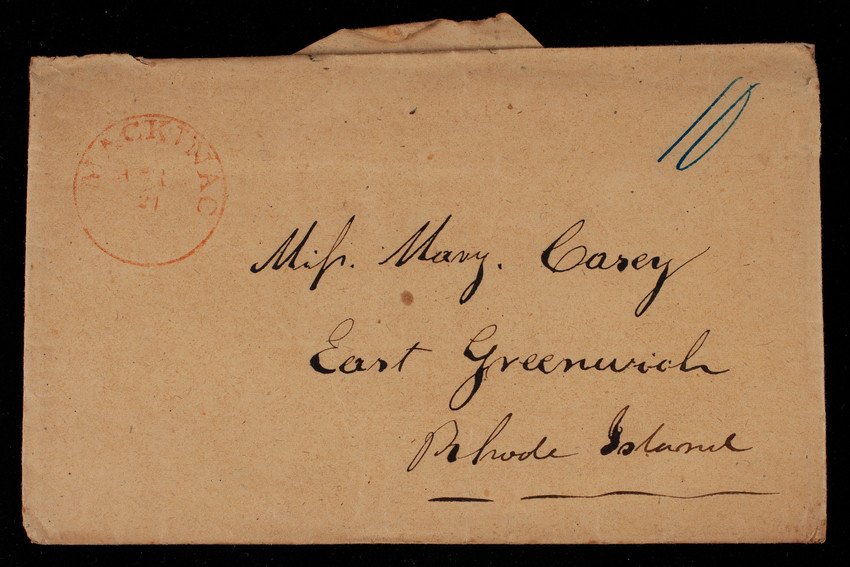 MACKINAC
10
Miſs. Mary. Casey
East Greenwich
Rhode Island